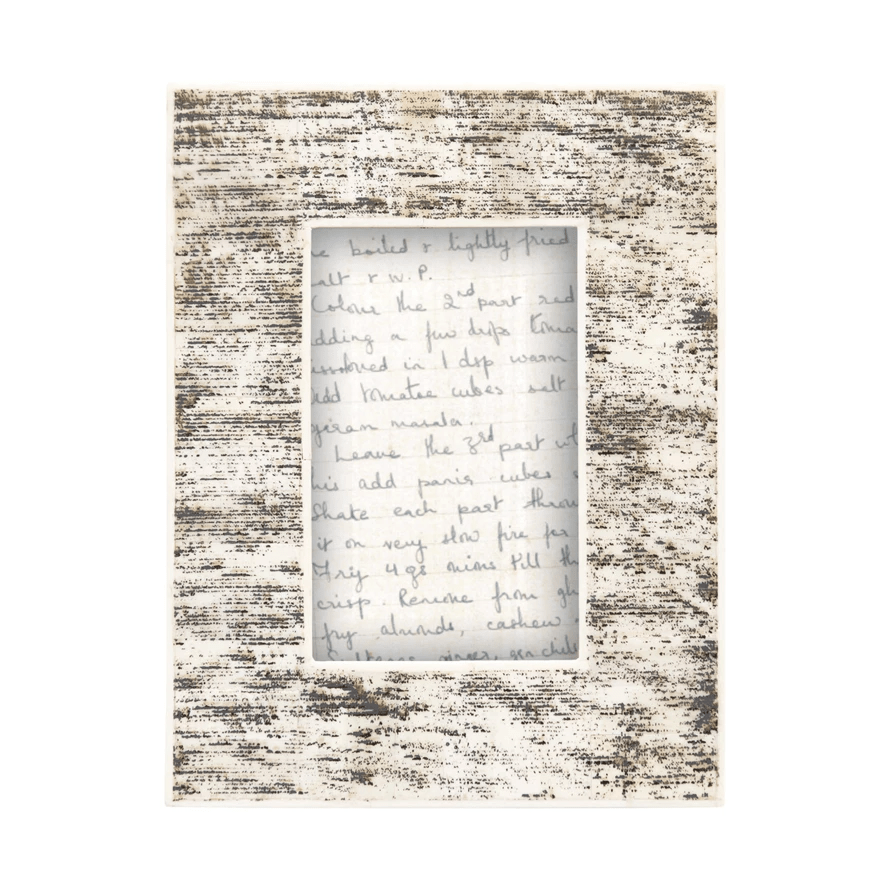 e boiled & lightly fried
alt & W.P.
Colour the 2nd part red
dding a few drops toma
issolved in 1 dsp warm
Add tomatoe cubes salt
garam masala.
Leave the 3rd part wh
his add panir cubes s
Shake each part throu
it on very slow fire for
Fry 4 gs mins till th
crisp. Remove from gh
fry almonds, cashew
Sultanas, ginger, gr chill